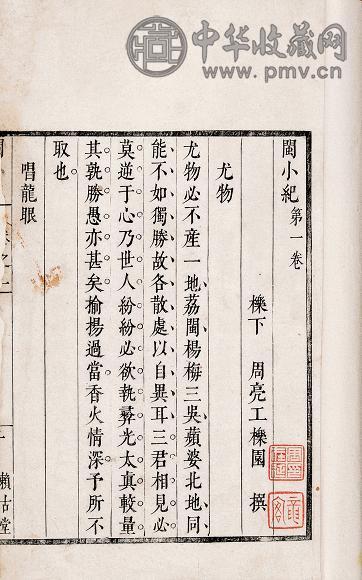 中华收藏网
www.pmv.cn
閩小紀 第一卷
櫟下 周亮工櫟園 撰
尤物
尤物必不產一地荔閩楊梅三吳蘋婆北地同
能不如獨勝故各散處以自異耳三君相見必
莫逆于心乃世人紛紛必欲執彛光太真較量
其孰勝愚亦甚矣揄揚過當香火情深予所不
取也
唱龍眼
賴古堂